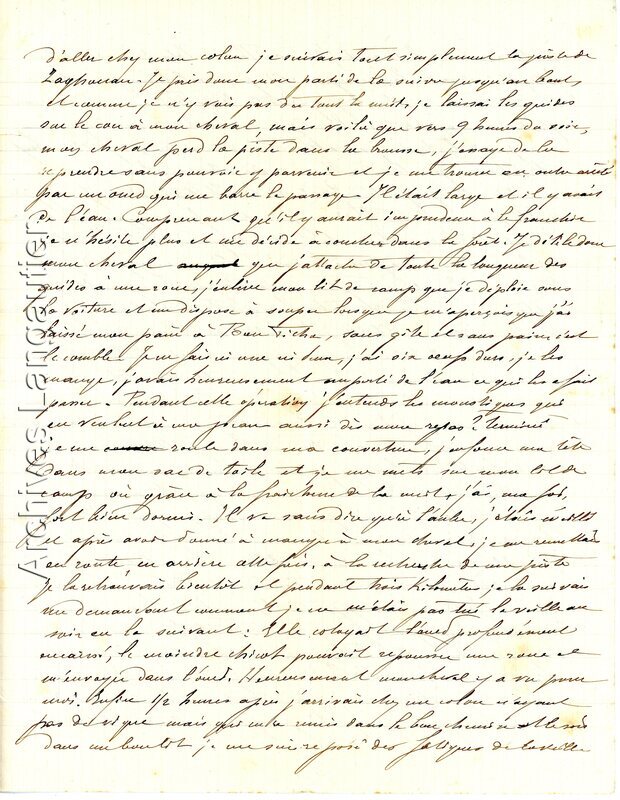 d'aller chez mon colon je suivais tout simplement la piste de
Zaghouan. Je pris donc mon parti de la suivre jusqu'au bout,
et comme je n'y vois pas du tout la nuit, je laissai les guides
sur le cou à mon cheval, mais voilà que vers 9 heures du soir,
mon cheval perd la piste dans la brousse, j'essaye de la
reprendre sans pouvoir y parvenir et je me trouve en outre arrêté
par un oued qui me barre le passage. Il était large et il y avait
de l'eau. Comprenant qu'il y aurait imprudence à le franchir
je n'hésite plus et me décide à coucher dans la forêt. Je dételle donc
mon cheval que j'attache de toute la longueur des
guides à une roue, j'enlève mon lit de camp que je déploie sous
la voiture et me dispose à souper lorsque je m'aperçois que j'ai
laissé mon pain à Bou Ficha, sans gîte et sans pain, c'est
le comble. Je me fais une, j'ai six oeufs durs, je les
mange, j'avais heureusement emporté de l'eau ce qui les a fait
passer. Pendant cette opération j'entends les moustiques qui
en veulent à ma peau aussi dès mon repas terminé
je me roule dans ma couverture, j'enfonce ma tête
dans mon sac de toile et je me mets sur mon lit de
camp où grâce à la fraîcheur de la nuit, j'ai, ma foi,
fort bien dormi. Il va sans dire qu'à l'aube, j'étais éveillé
et après avoir donné à manger à mon cheval, je me remettais
en route, en arrière cette fois, à la recherche de ma piste
Je la retrouvais bientôt et pendant trois kilomètres je la suivais
me demandant comment je ne m'étais pas tué la veille au
soir en la suivant : Elle cotoyait l'oued profondément
encaissé, le moindre chicot pouvait repousser une roue et
m'envoyer dans l'oued. Heureusement mon cheval y a vu pour
moi. Enfin 1/2 heures après j'arrivais chez mon colon n'ayant
pas de vigne mais qui m'a remis dans le bon chemin et le soir
dans un boulot je me suis reposé des fatigues de la veille
Archives Lançautier